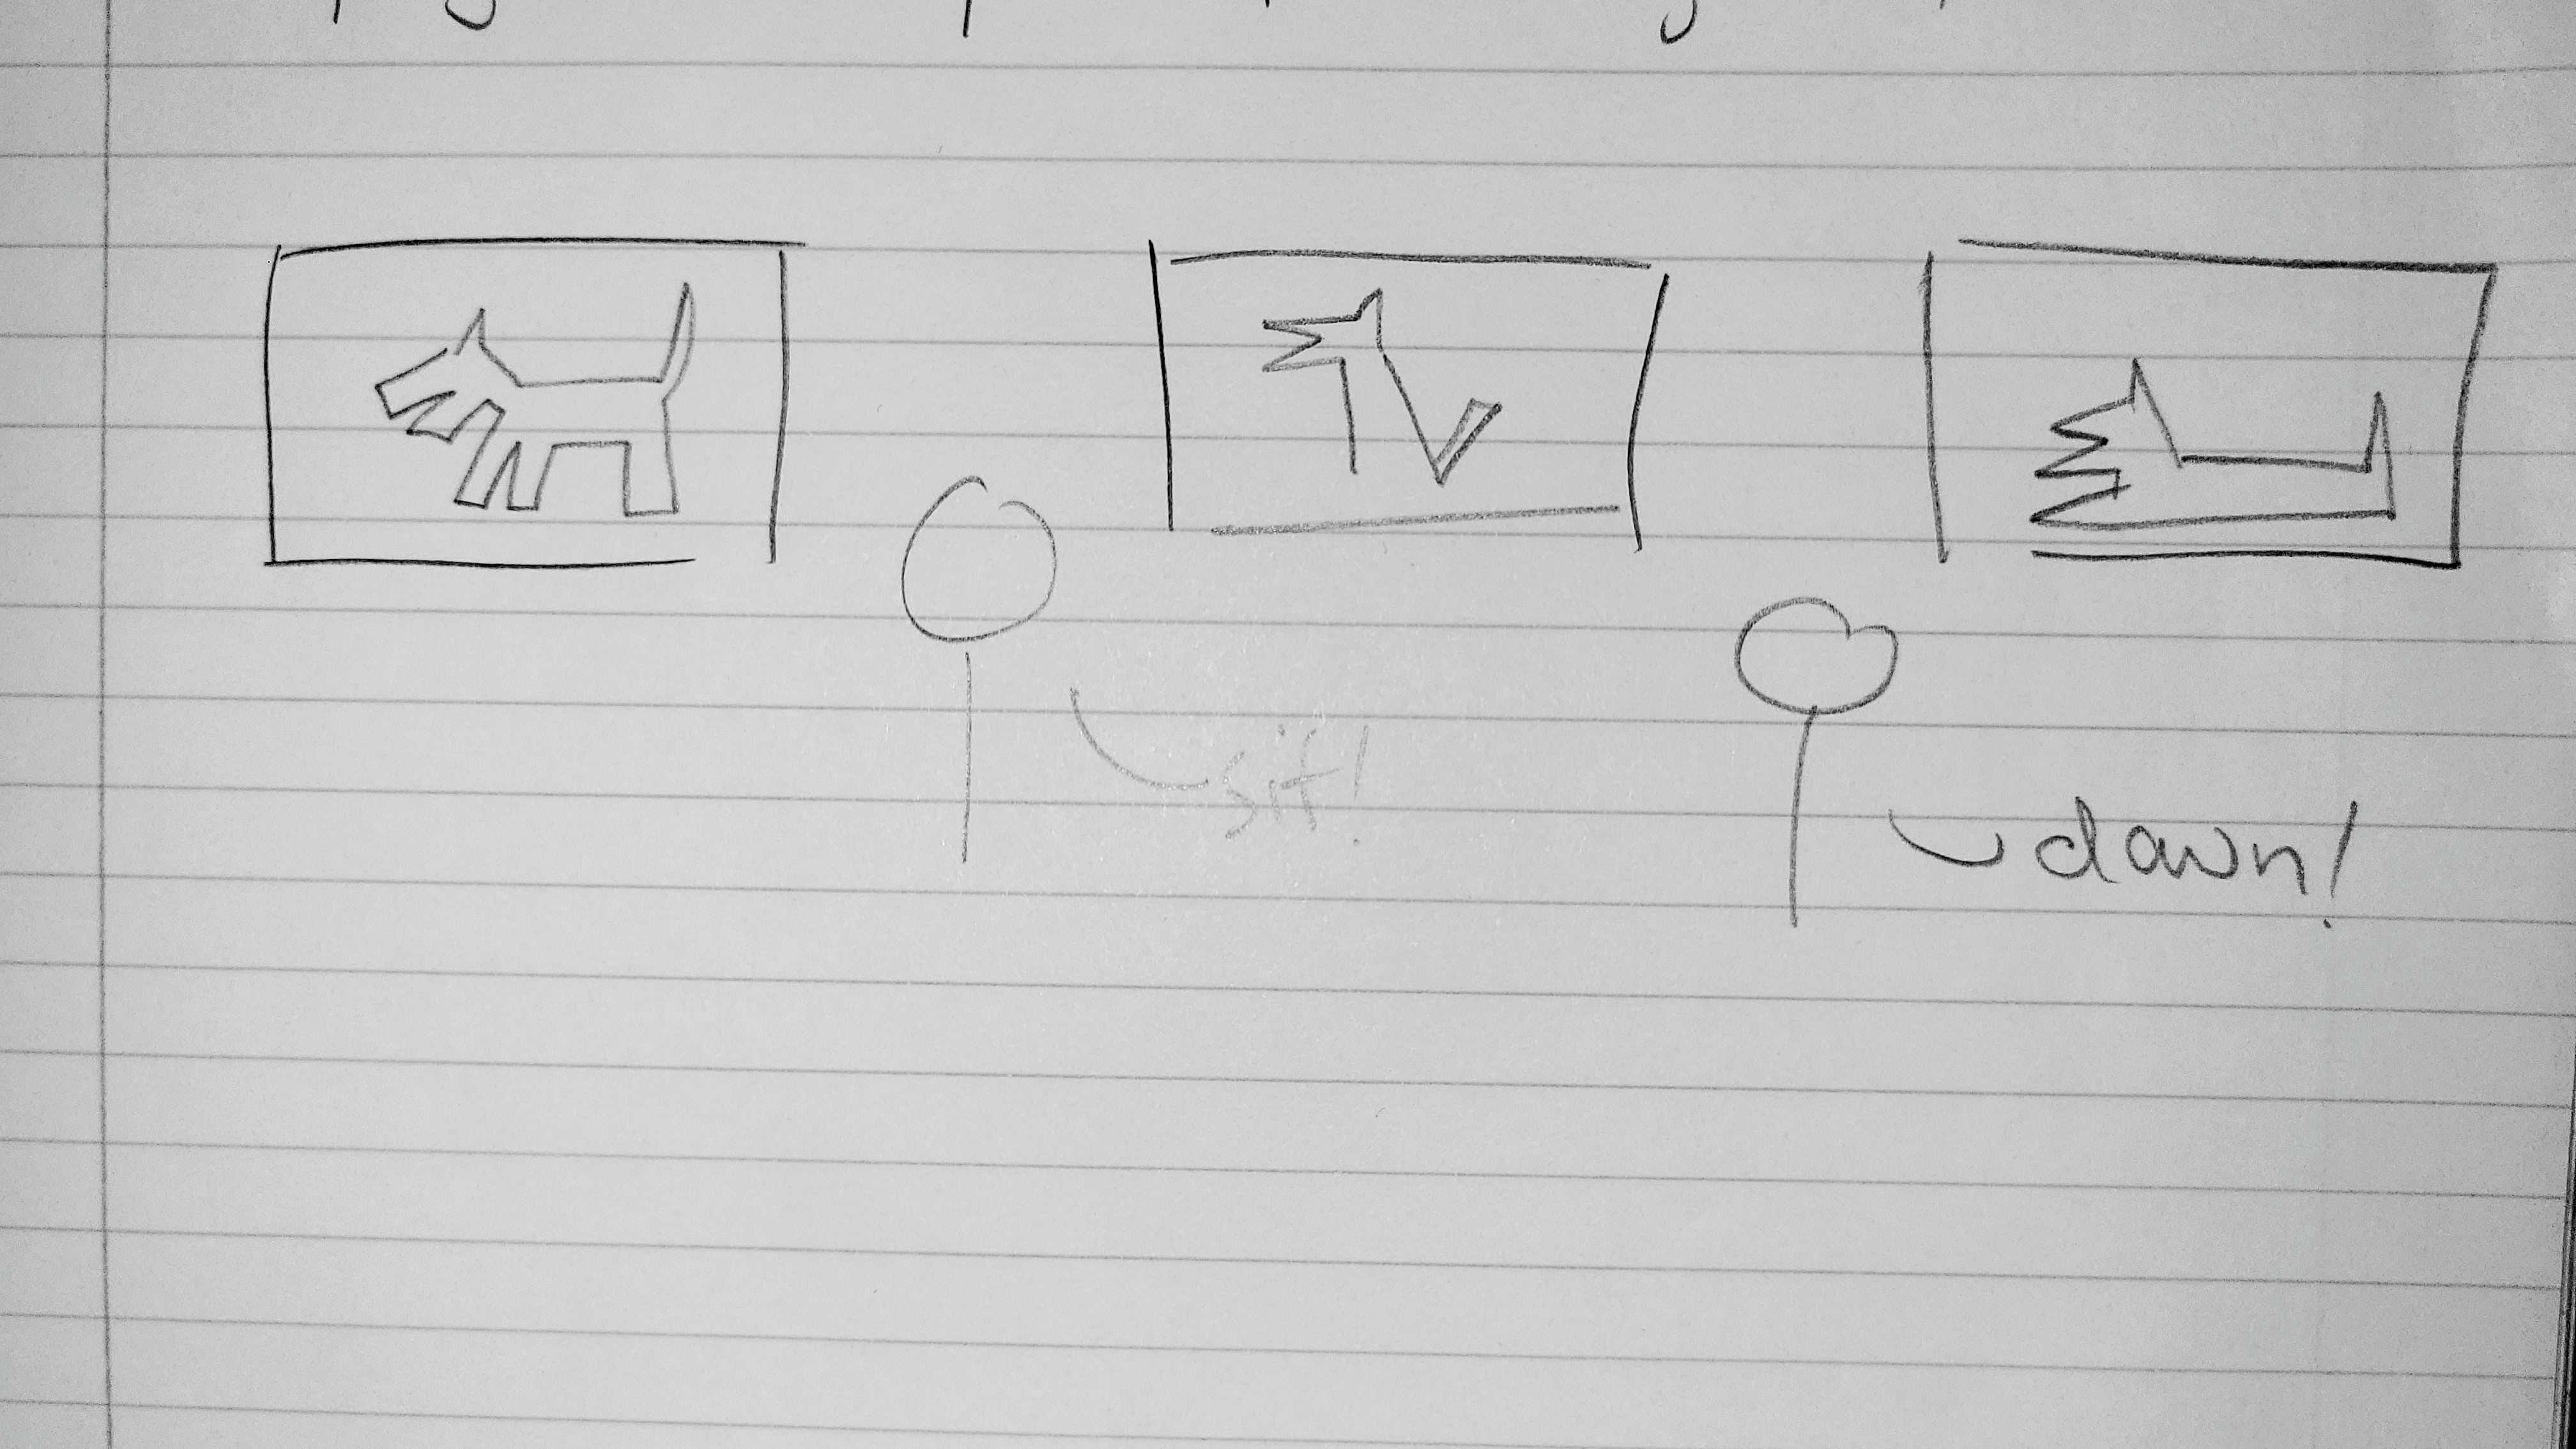 sit!
down!